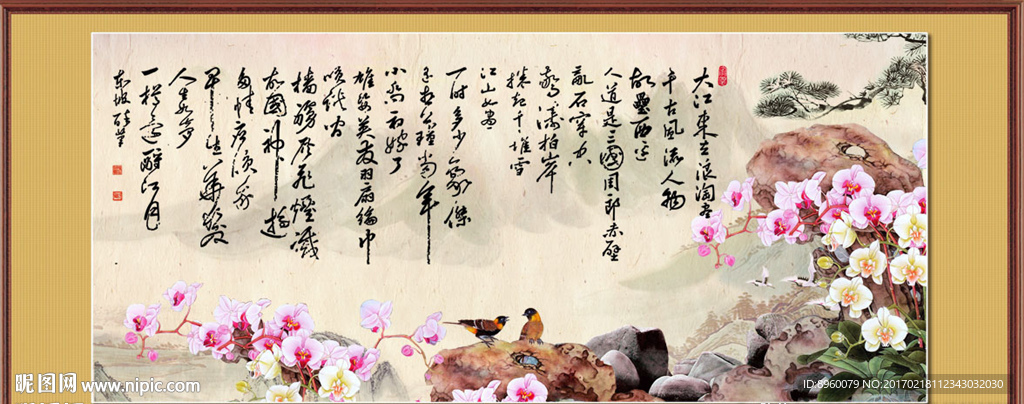 大江東去浪淘盡
千古風流人物
故壘西邊
人道是三國周郎赤壁
亂石穿空
驚濤拍岸
捲起千堆雪
江山如畫
一時多少豪傑
遙想公瑾當年
小喬初嫁了
雄姿英發羽扇綸巾
笑談間
檣櫓灰飛煙滅
故國神遊
多情應笑我
早生華髮
人生如夢
一樽還酹江月
東坡
昵图网 www.nipic.com
ID:8960079 NO:20170218112343032030